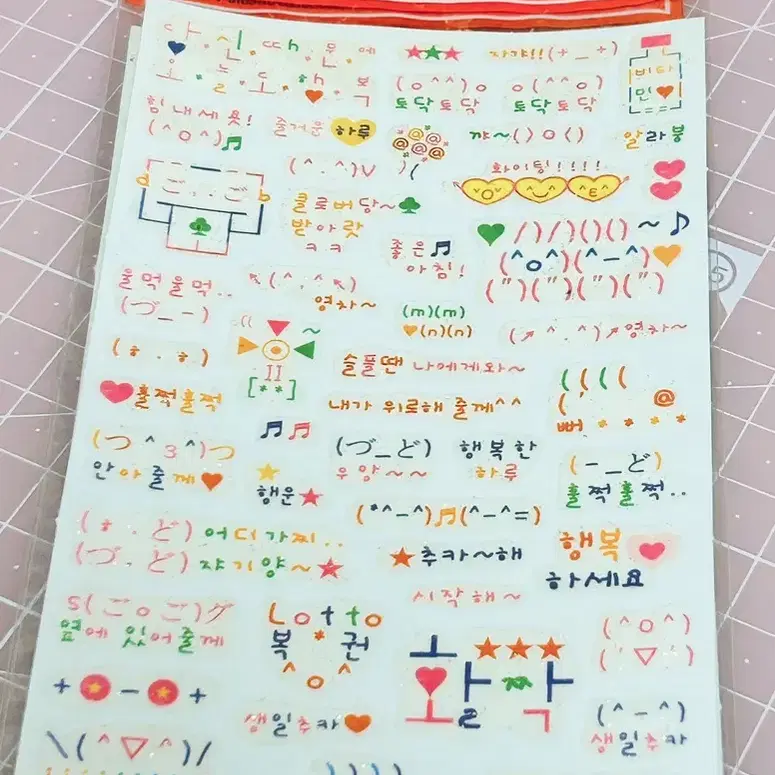 당.신.때.문.에
오.늘.도.행.복
★★★
자갸!!(+_+)
비타
민♥
(o^^)o
토닥토닥
o(^^o)
토닥토닥
힘내세욧!
(^O^)♬
즐거운 하루
@@
@@@
@@
꺄~()O()
알라븅
화이팅!!!!
(^.^)V
d ご..ご b
♣
클로버당~♣
받아랏
ㅋㅋ
좋은♬
아침!
♥/)/)()()~♪
(^o^)(^-^)♥
(")(")(")(")
울먹울먹..
(づ_-)
↖(^.^↖)
영차~
(m)(m)
♥(n)(n)
(↗^.^)↗영차~
(ㅎ.ㅎ)
II
[**]
슬플땐 나에게와~
♥훌쩍훌쩍
내가 위로해 줄게^^
((((
(' @
뻐****
♬♬
(つ^3^)つ
안아줄게♥
★
행운★
(づ_ど)
우앙~~
행복한
하루
(-_ど)
훌쩍훌쩍..
(*^-^)♬(^-^=)
(ㅎ.ど)어디가찌..
(づ.ど)쟈기양~★
★추카~해
행복♥
하세요
시작해~
S(ごoご)グ
옆에 있어줄게
Lotto
복*권
^o^
★★★
(^O^)
('▽')
+★-★+
생일추카♥
(^-^)
생일추카
\(^▽^)/